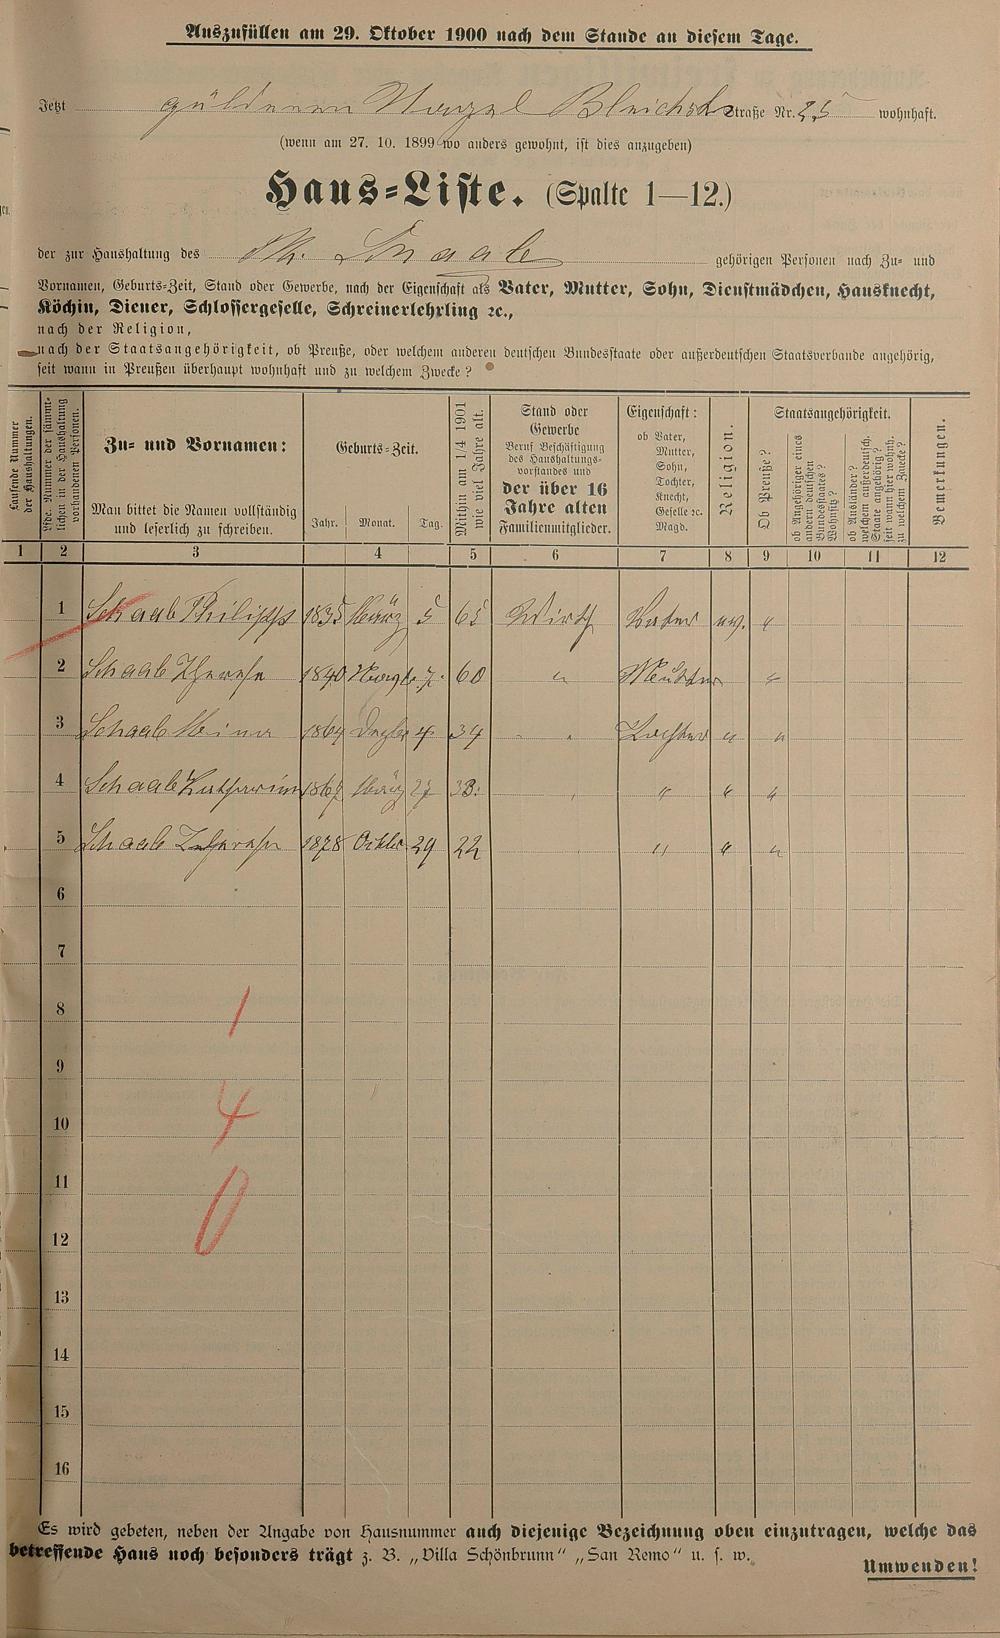 Auszufüllen am 29. Oktober 1900 nach dem Stande an diesem Tage.
Jetzt güldenen Nagel Bleichstr Straße Nr. 25 wohnhaft.
(wenn am 27. 10. 1899 wo anders gewohnt, ist dies anzugeben)
Haus-Liste. (Spalte 1—12.)
der zur Haushaltung des Ph. Schaab gehörigen Personen nach Zu- und
Vornamen, Geburts-Zeit, Stand oder Gewerbe, nach der Eigenschaft als Vater, Mutter, Sohn, Dienstmädchen, Hausknecht,
Köchin, Diener, Schlossergeselle, Schreinerlehrling ꝛc.,
nach der Religion,
nach der Staatsangehörigkeit, ob Preuße, oder welchem anderen deutschen Bundesstaate oder außerdeutschen Staatsverbande angehörig,
seit wann in Preußen überhaupt wohnhaft und zu welchem Zwecke?
Laufende Nummer der Haushaltungen.
Lfde. Nummer der sämmtlichen in der Haushaltung vorhandenen Personen.
Zu- und Vornamen:
Man bittet die Namen vollständig
und leserlich zu schreiben.
Geburts-Zeit.
Jahr. Monat. Tag.
Mithin am 1/4 1901
wie viel Jahre alt.
Stand oder
Gewerbe
Beruf Beschäftigung
des Haushaltungs-
vorstandes und
der über 16
Jahre alten
Familienmitglieder.
Eigenschaft:
ob Vater,
Mutter,
Sohn,
Tochter,
Knecht,
Geselle ꝛc.
Magd.
Religion.
Staatsangehörigkeit.
Ob Preuße?
ob Angehöriger eines
andern deutschen
Bundesstaates?
Wohnsitz?
ob Ausländer?
welchem außerdeutsch.
Staate angehörig?
seit wann hier wohnh.
zu welchem Zwecke?
Bemerkungen.
1 2 3 4 5 6 7 8 9 10 11 12
1 Schaab Philipp 1835 März 5 65 Wirth Vater ev. "
2 Schaab Therese 1840 7. 60 " Mutter "
3 Schaab Mina Dezbr 4 34 " Tochter " "
4 Schaab Katharina 1867 März 27 33. " " " "
5 Schaab Therese 1878 Octbr 29 22 " " "
6
7
8 1
9
10 4
11
12 0
13
14
15
16
Es wird gebeten, neben der Angabe von Hausnummer auch diejenige Bezeichnung oben einzutragen, welche das
betreffende Haus noch besonders trägt z. B. „Villa Schönbrunn" „San Remo" u. s. w.
Umwenden!